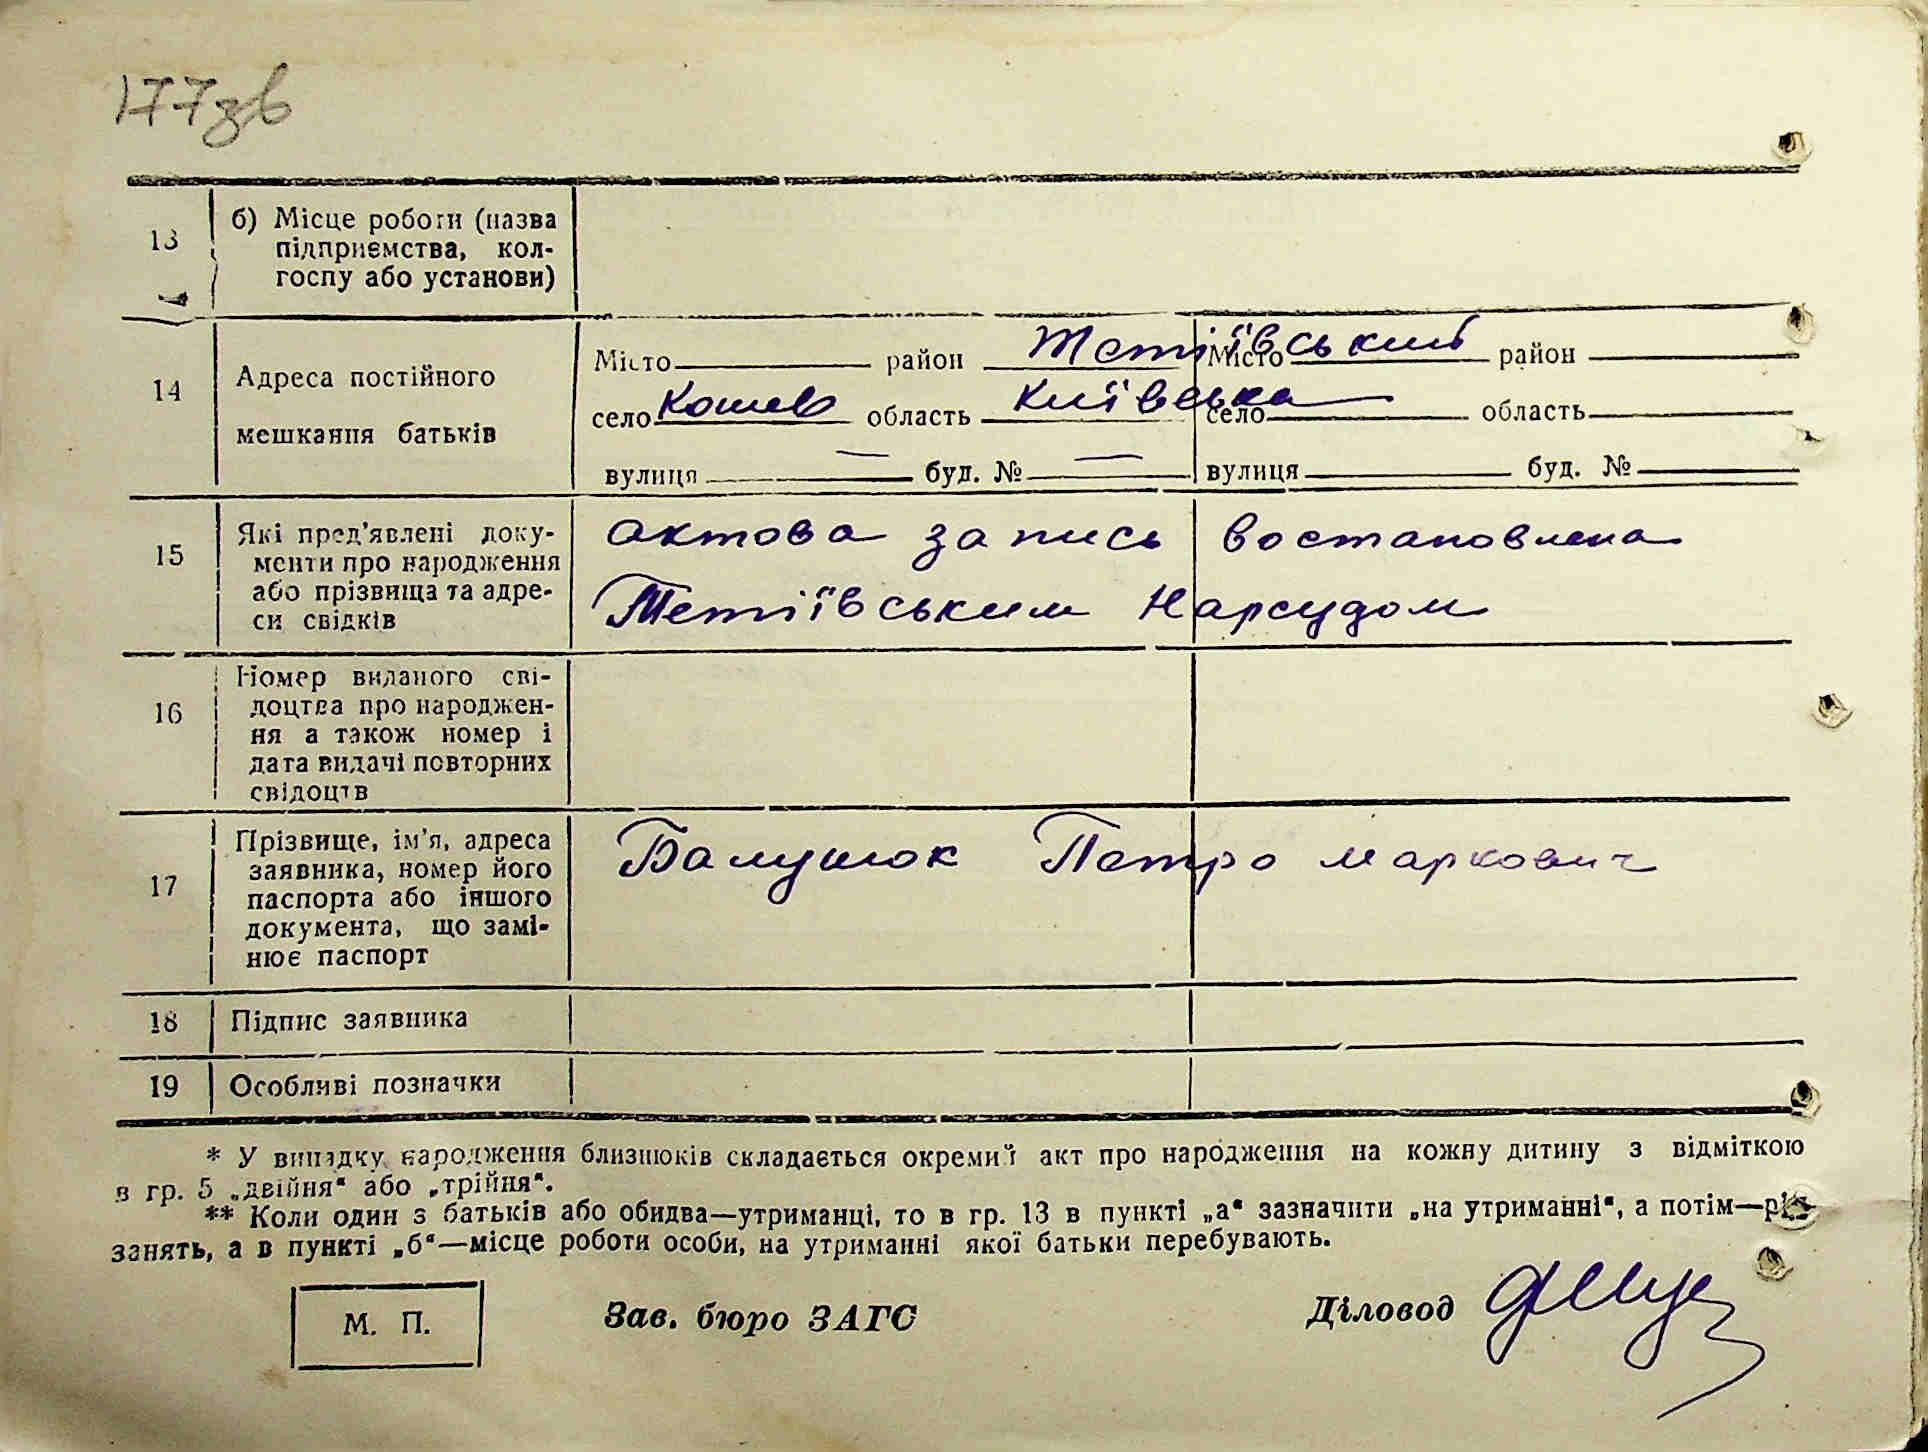 177зв
13 б) Місце роботи (назва
підприємства, кол-
госпу або установи)
14 Адреса постійного
мешкання батьків
Місто район Тетіївський Місто район
село Кошев область Київська село область
вулиця — буд. № — вулиця буд. №
15 Які пред'явлені доку-
менти про народження
або прізвища та адре-
си свідків
актова запись востановлена
Тетіївським Нарсудом
16 Номер виданого сві-
доцтва про народжен-
ня а також номер і
дата видачі повторних
свідоцтв
17 Прізвище, ім'я, адреса
заявника, номер його
паспорта або іншого
документа, що замі-
нює паспорт
Балушок Петро Маркович
18 Підпис заявника
19 Особливі позначки
* У випадку народження близнюків складається окремий акт про народження на кожну дитину з відміткою
в гр. 5 „двійня“ або „трійня“.
** Коли один з батьків або обидва—утриманці, то в гр. 13 в пункті „а“ зазначити „на утриманні“, а потім—рід
занять, а в пункті „б“—місце роботи особи, на утриманні якої батьки перебувають.
М. П. Зав. бюро ЗАГС Діловод